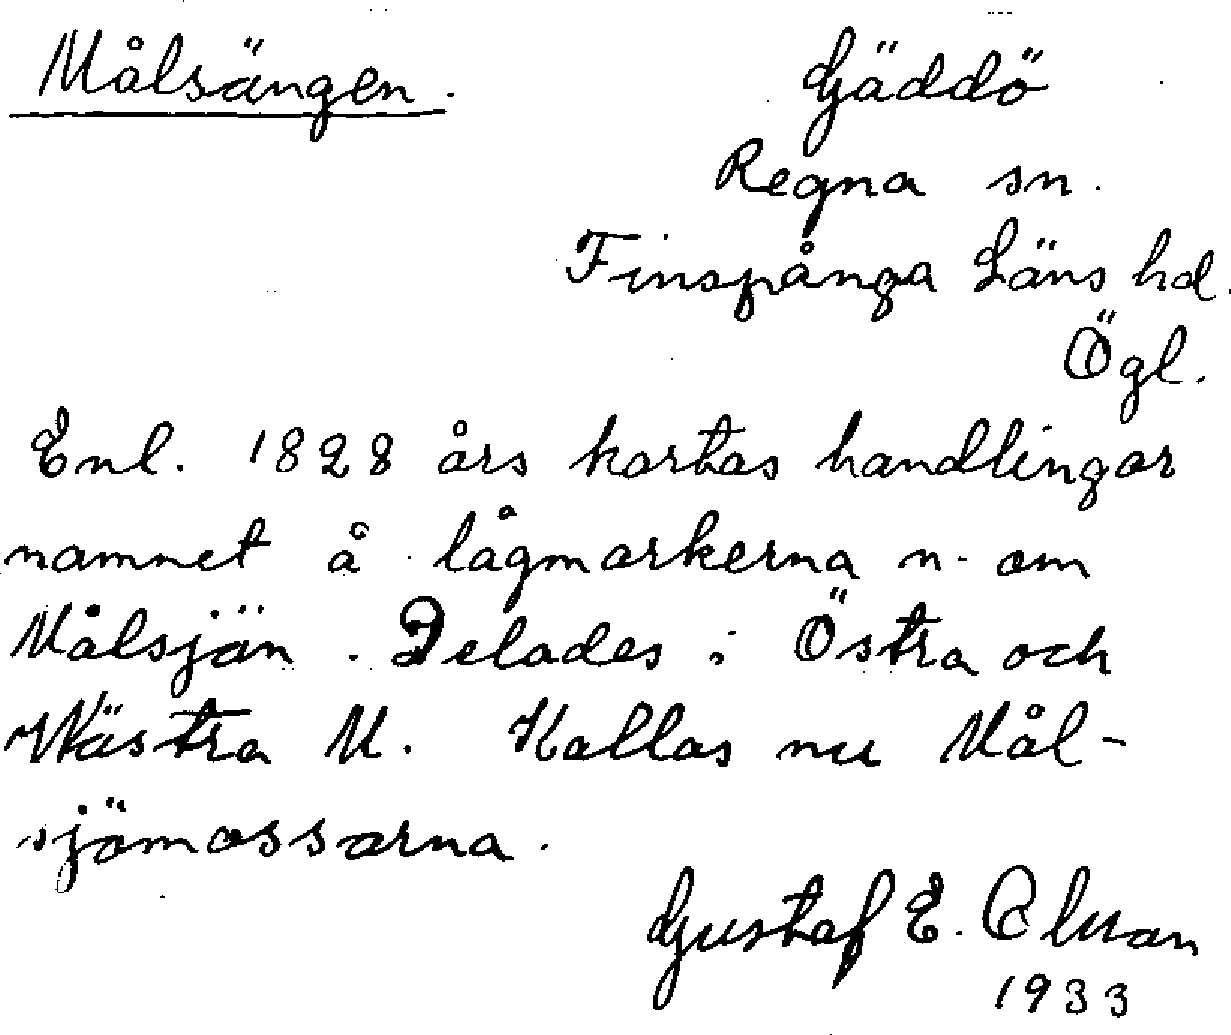 Målsängen.
Gäddö
Regna sn.
Finspånga Läns hd.
Ögl.
Enl. 1828 års kartas handlingar
namnet å lågmarkerna n. om
Målsjön. Delades i Östra och
Wästra M. Kallas nu Mål-
sjömossarna.
Gustaf E.
1933